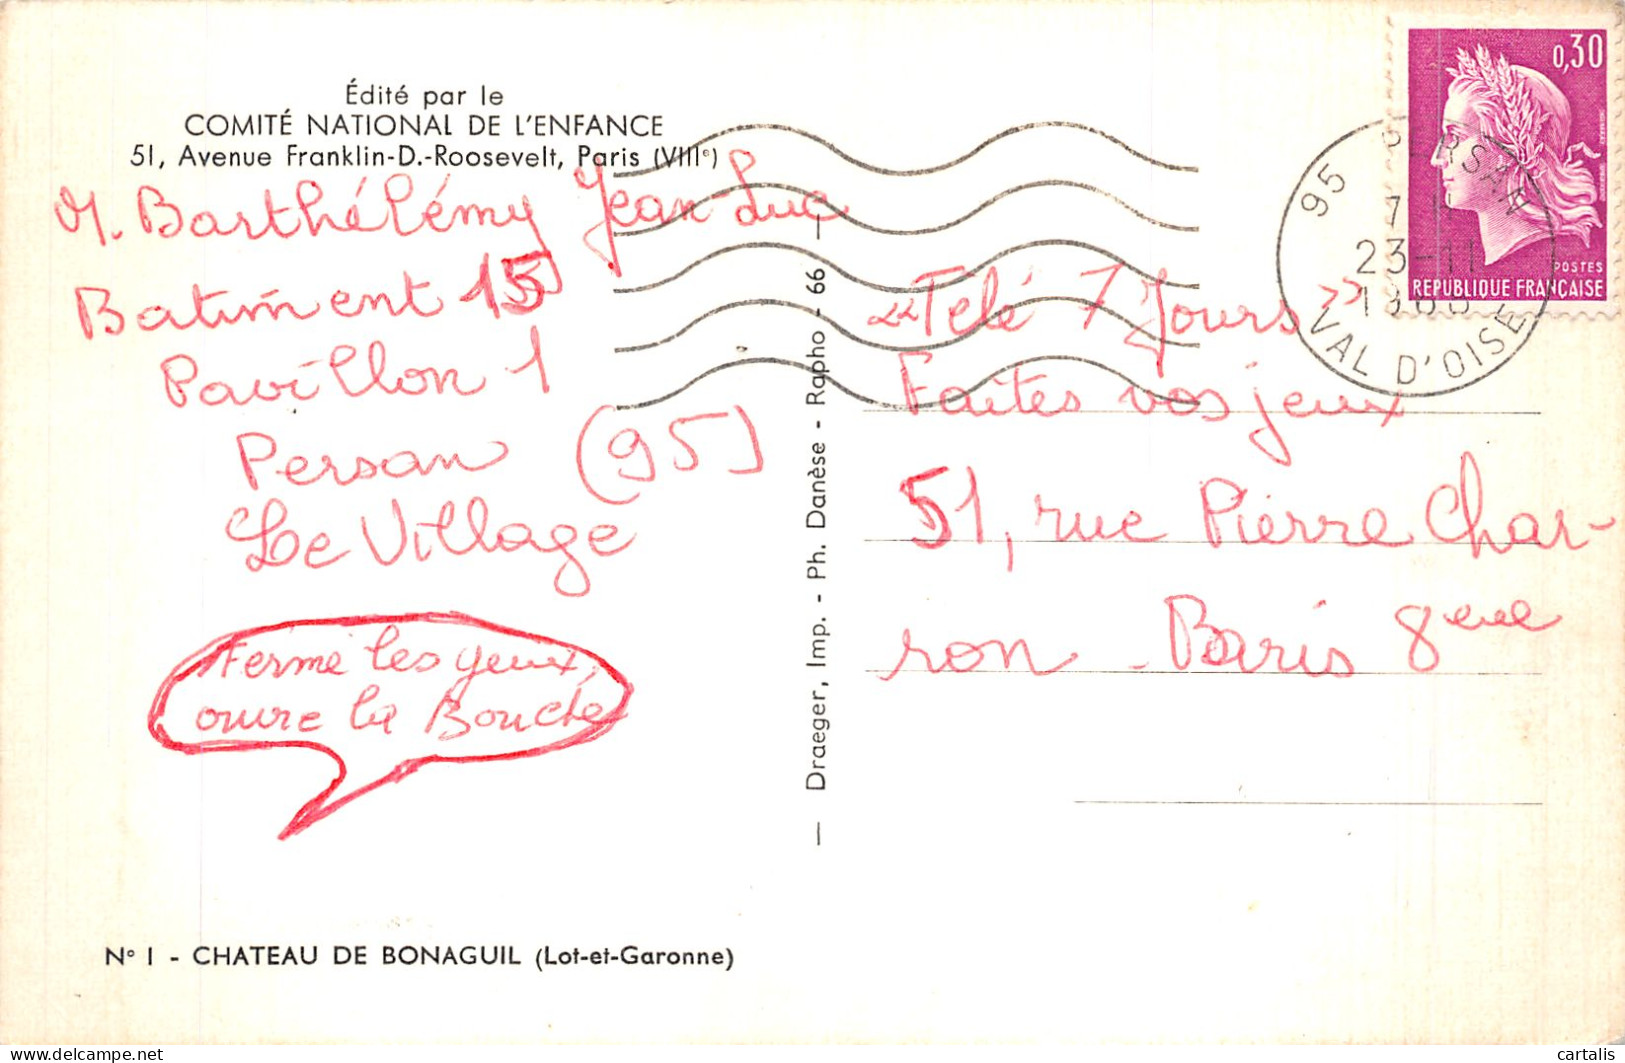 Édité par le
COMITÉ NATIONAL DE L'ENFANCE
51, Avenue Franklin-D.-Roosevelt, Paris (VIIIe)
M. Barthélémy Jean-Luc
Batiment 15
Pavillon 1
Persan (95)
Le Village
Ferme les yeux,
ouvre la Bouche
N° 1 - CHATEAU DE BONAGUIL (Lot-et-Garonne)
— Draeger, Imp. - Ph. Danèse - Rapho - 66 —
0,30
POSTES
REPUBLIQUE FRANÇAISE
95 PERSAN
23-11
VAL D'OISE
"Télé 7 Jours"
Faites vos jeux
51, rue Pierre Char-
ron - Paris 8eme
cartalis